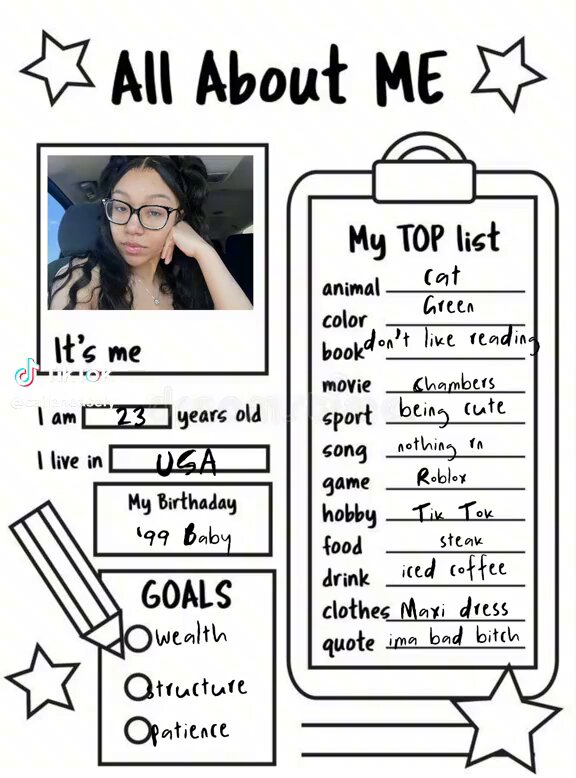 All About ME
It's me
TikTok
I am 23 years old
I live in USA
My Birthaday
'99 Baby
GOALS
wealth
structure
patience
My TOP list
animal cat
color Green
book don't like reading
movie Chambers
sport being cute
song nothing rn
game Roblox
hobby Tik Tok
food steak
drink iced coffee
clothes Maxi dress
quote ima bad bitch